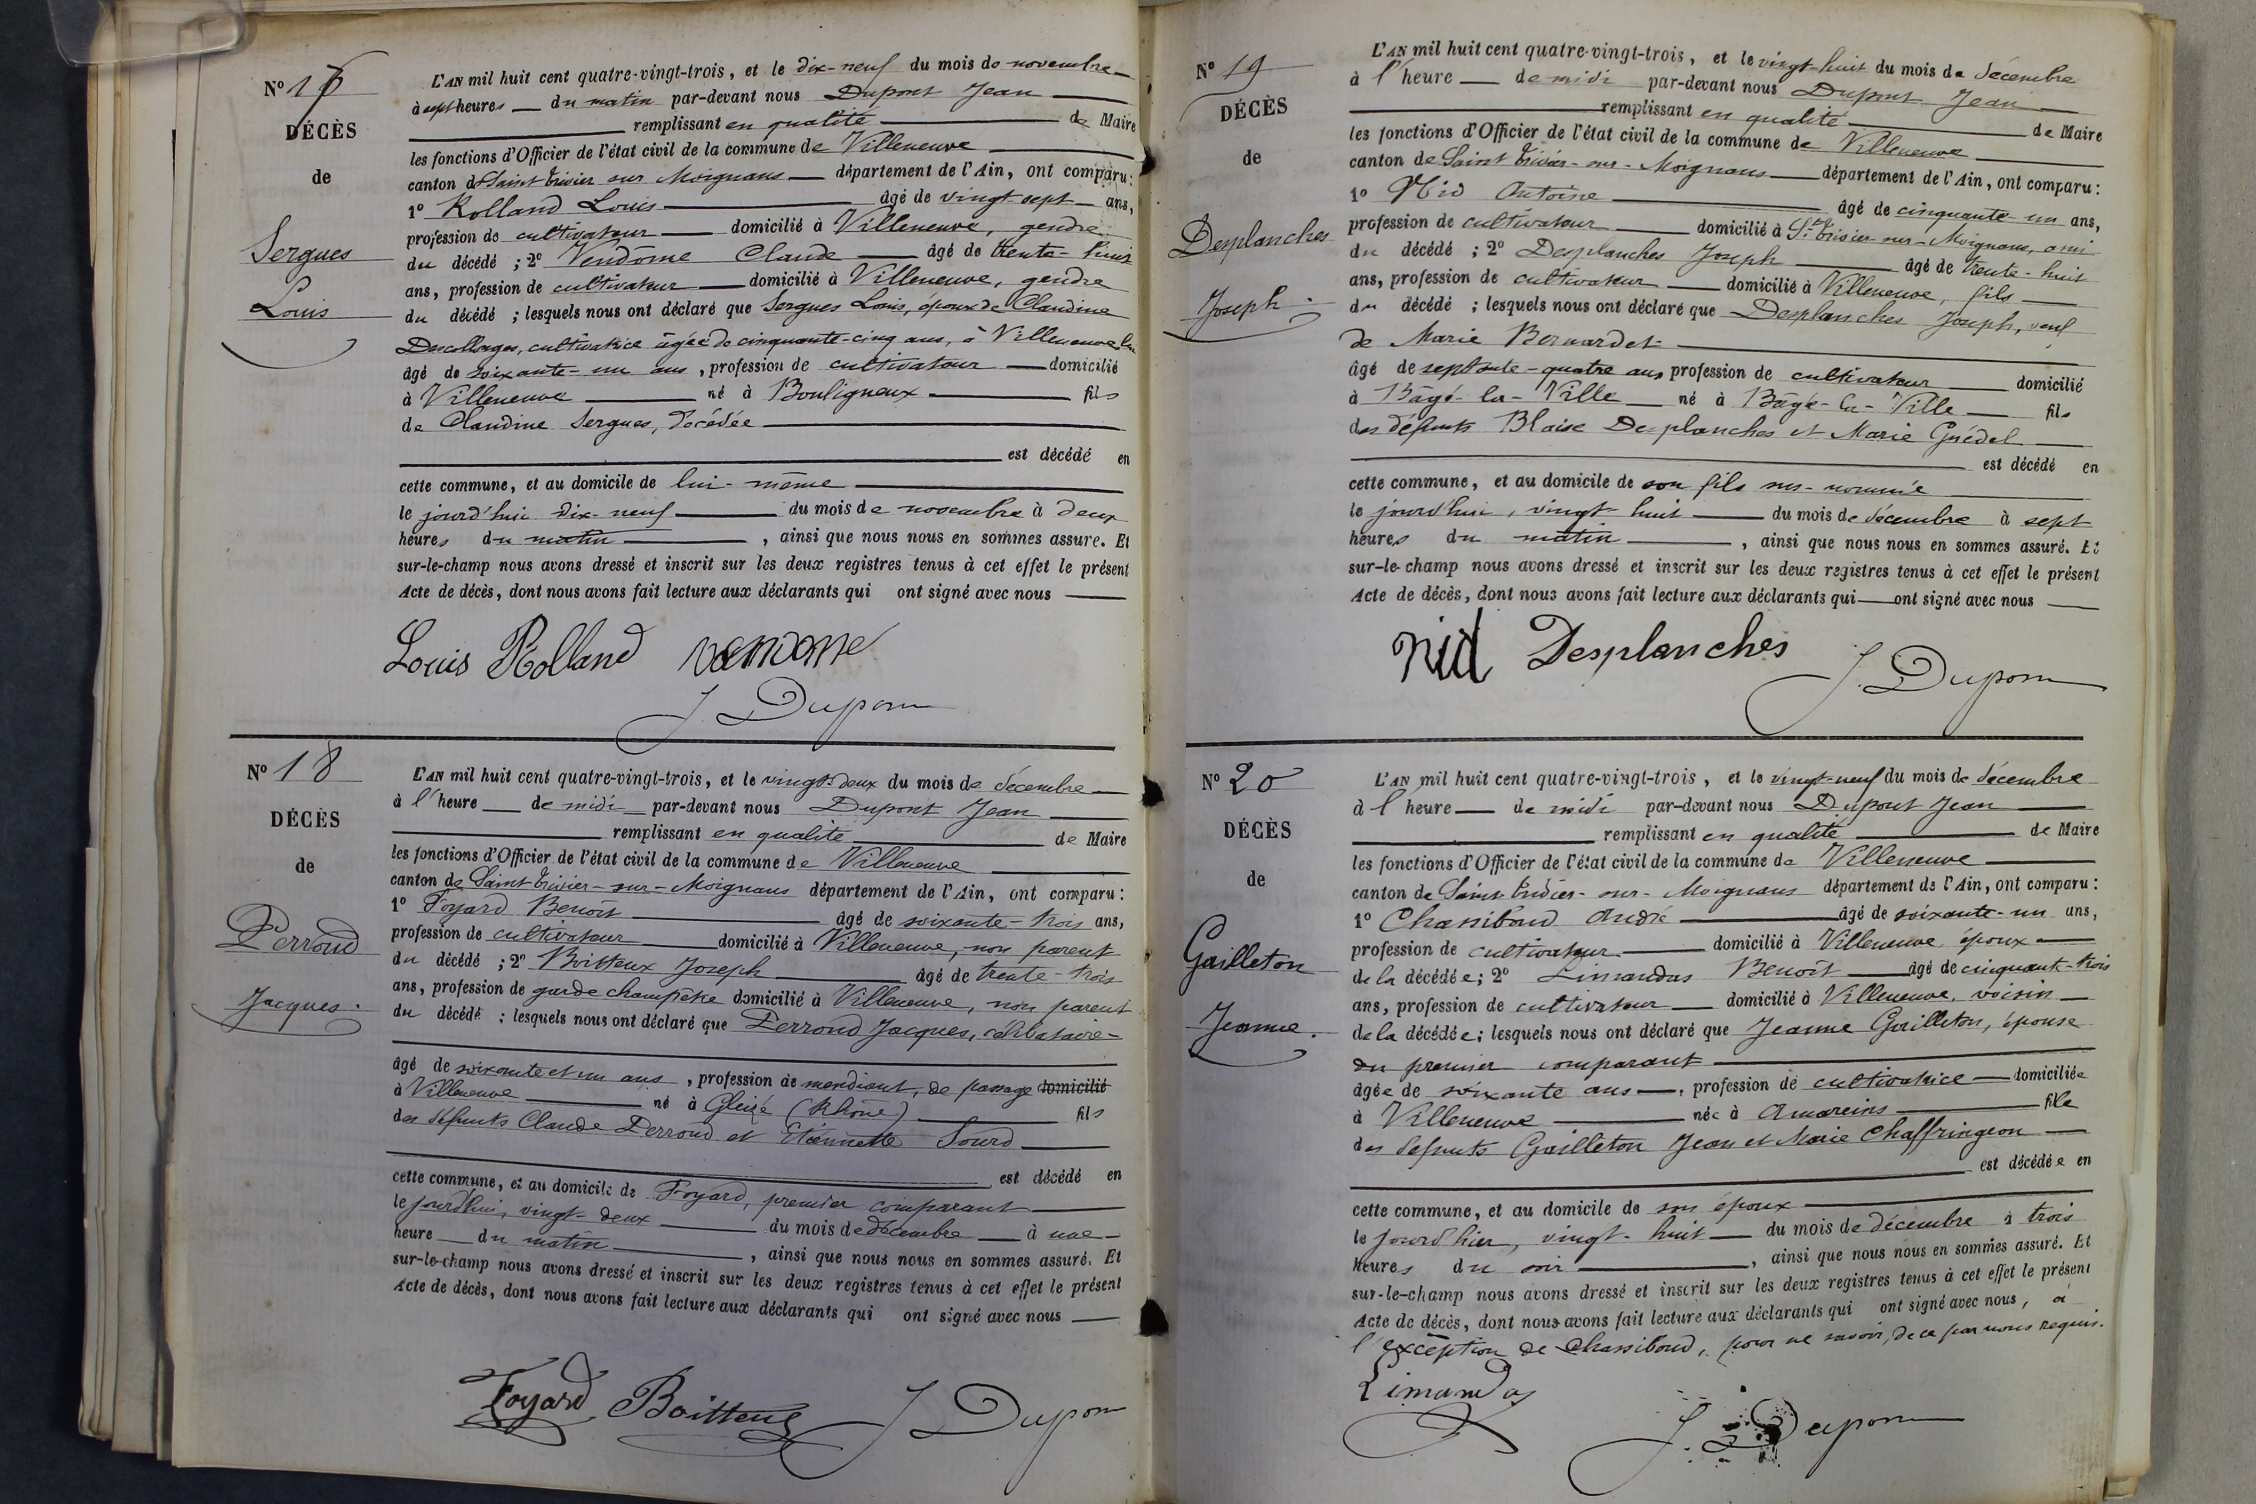 DÉCÈS
de
Sergues
Louis
L'AN mil huit cent quatre-vingt-trois, et le dix-neuf du mois de novembre
à sept heures du matin par-devant nous Dupont Jean
remplissant en qualité de Maire
les fonctions d'Officier de l'état civil de la commune de Villeneuve
canton de Saint Trivier sur Moignans département de l'Ain, ont comparu :
1º Rolland Louis âgé de vingt sept ans,
profession de cultivateur domicilié à Villeneuve, gendre
du décédé ; 2º Vendôme Claude âgé de trente-huit
ans, profession de cultivateur domicilié à Villeneuve, gendre
du décédé ; lesquels nous ont déclaré que Sergues Louis, époux de Claudine
Descollonges, cultivatrice âgée de cinquante-cinq ans, à Villeneuve
âgé de soixante-un ans, profession de cultivateur domicilié
à Villeneuve né à Bouligneux fils
de Claudine Sergues, décédée
est décédé en
cette commune, et au domicile de lui-même
le jourd'hui dix-neuf du mois de novembre à deux
heures du matin, ainsi que nous nous en sommes assuré. Et
sur-le-champ nous avons dressé et inscrit sur les deux registres tenus à cet effet le présent
Acte de décès, dont nous avons fait lecture aux déclarants qui ont signé avec nous
Louis Rolland vandome
J. Dupont
Nº 18
DÉCÈS
de
Perroud
Jacques.
L'AN mil huit cent quatre-vingt-trois, et le vingt-deux du mois de décembre
à l'heure de midi par-devant nous Dupont Jean
remplissant en qualité de Maire
les fonctions d'Officier de l'état civil de la commune de Villeneuve
canton de Saint Trivier-sur-Moignans département de l'Ain, ont comparu :
1º Foyard Benoît âgé de soixante-trois ans,
profession de cultivateur domicilié à Villeneuve, non parent
du décédé ; 2º Boitteux Joseph âgé de trente-trois
ans, profession de garde champêtre domicilié à Villeneuve, non parent
du décédé ; lesquels nous ont déclaré que Perroud Jacques, célibataire
âgé de soixante et un ans, profession de mendiant, de passage domicilié
à Villeneuve né à Gleizé (Rhône) fils
des défunts Claude Perroud et Etiennette Sourd
est décédé en
cette commune, et au domicile de Foyard, premier comparant
le jourd'hui, vingt-deux du mois de décembre à une
heure du matin, ainsi que nous nous en sommes assuré. Et
sur-le-champ nous avons dressé et inscrit sur les deux registres tenus à cet effet le présent
Acte de décès, dont nous avons fait lecture aux déclarants qui ont signé avec nous
Foyard Boitteux J Dupont
Nº 19
DÉCÈS
de
Desplanches
Joseph.
L'AN mil huit cent quatre-vingt-trois, et le vingt-huit du mois de décembre
à l'heure de midi par-devant nous Dupont Jean
remplissant en qualité de Maire
les fonctions d'Officier de l'état civil de la commune de Villeneuve
canton de Saint Trivier-sur-Moignans département de l'Ain, ont comparu :
1º Nid Antoine âgé de cinquante-un ans,
profession de cultivateur domicilié à St Trivier-sur-Moignans, ami
du décédé ; 2º Desplanches Joseph âgé de trente-huit
ans, profession de cultivateur domicilié à Villeneuve, fils
du décédé ; lesquels nous ont déclaré que Desplanches Joseph, veuf
de Marie Bernardet
âgé de septante-quatre ans profession de cultivateur domicilié
à Bâgé-la-Ville né à Bâgé-la-Ville fils
des défunts Blaise Desplanches et Marie Guédel
est décédé en
cette commune, et au domicile de son fils sus-nommé
le jourd'hui, vingt-huit du mois de décembre à sept
heures du matin, ainsi que nous nous en sommes assuré. Et
sur-le-champ nous avons dressé et inscrit sur les deux registres tenus à cet effet le présent
Acte de décès, dont nous avons fait lecture aux déclarants qui ont signé avec nous
Nid Desplanches
J. Dupont
Nº 20
DÉCÈS
de
Gailleton
Jeanne.
L'AN mil huit cent quatre-vingt-trois, et le vingt-neuf du mois de décembre
à l'heure de midi par-devant nous Dupont Jean
remplissant en qualité de Maire
les fonctions d'Officier de l'état civil de la commune de Villeneuve
canton de Saint Trivier-sur-Moignans département de l'Ain, ont comparu :
1º Chassiboud André âgé de soixante-un ans,
profession de cultivateur domicilié à Villeneuve, époux
de la décédée ; 2º Limandas Benoît âgé de cinquante-trois
ans, profession de cultivateur domicilié à Villeneuve, voisin
de la décédée ; lesquels nous ont déclaré que Jeanne Gailleton, épouse
du premier comparant
âgée de soixante ans, profession de cultivatrice domiciliée
à Villeneuve née à Amareins fille
des défunts Gailleton Jean et Marie Chaffringeon
est décédée en
cette commune, et au domicile de son époux
le jourd'hier, vingt-huit du mois de décembre à trois
heures du soir, ainsi que nous nous en sommes assuré. Et
sur-le-champ nous avons dressé et inscrit sur les deux registres tenus à cet effet le présent
Acte de décès, dont nous avons fait lecture aux déclarants qui ont signé avec nous, à
l'exception de Chassiboud, pour ne savoir, de ce par nous requis.
Limandas
J. Dupont